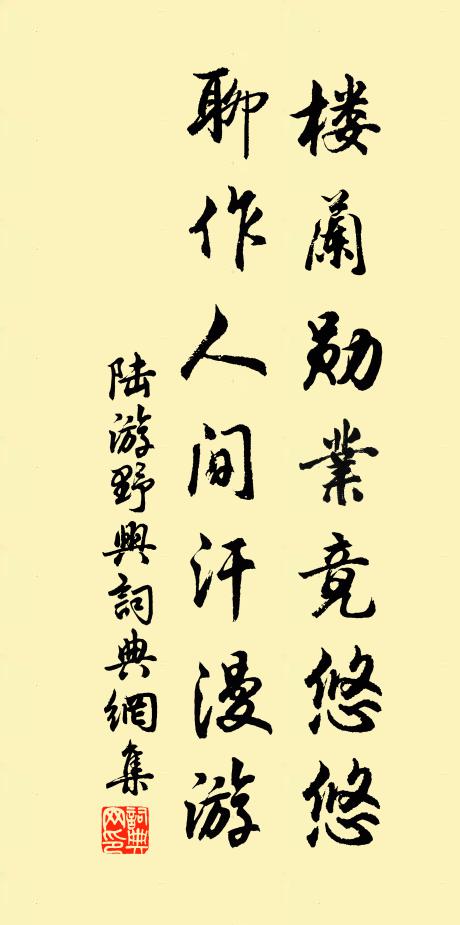 楼蘭勛業竟悠悠
聊作人間汗漫游
陆游野興詞典網集
詞典
网印